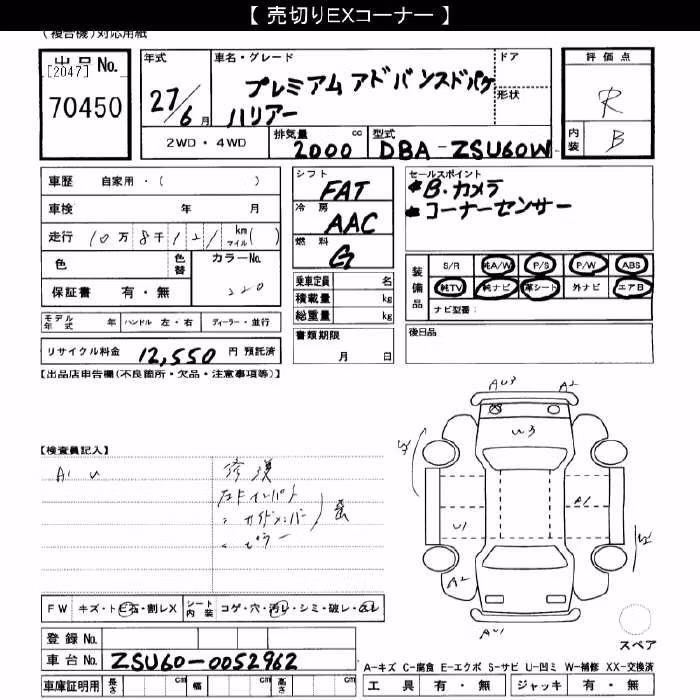 【 売切りEXコーナー 】
(複合機)対応用紙
出品 No. [2047] 70450
年式 27/6月
車名・グレード プレミアム アドバンスドパケ ハリアー
ドア
形状
評価点 R
内装 B
2WD・4WD
排気量 2000 cc
型式 DBA-ZSU60W
車歴 自家用・( )
車検 年 月
走行 10万8千121 km マイル( )
色 色替 カラーNo. 220
保証書 有・無
シフト FAT
冷房 AAC
燃料 G
乗車定員 名
積載量 kg
総重量 kg
書類期限 月 日
セールスポイント
B.カメラ
コーナーセンサー
装備品 S/R 純A/W P/S P/W ABS
純TV 純ナビ 革シート 外ナビ エアB
ナビ型番:
後日品
モデル年式 年 ハンドル 左・右 ディーラー・並行
リサイクル料金 12,550 円 預託済
【出品店申告欄(不良箇所・欠品・注意事項等)】
【検査員記入】
A1 U
修復
ピラー
AU3 A2
U3
A1
U1
A2
AU1
FW キズ・トビ石・割レX シート内装 コゲ・穴・汚レ・シミ・破レ
登録 No.
車台 No. ZSU60-0052962
車庫証明用 長さ cm 幅 cm 高さ cm
スペア
A-キズ C-腐食 E-エクボ S-サビ U-凹ミ W-補修 XX-交換済
工具 有・無 ジャッキ 有・無